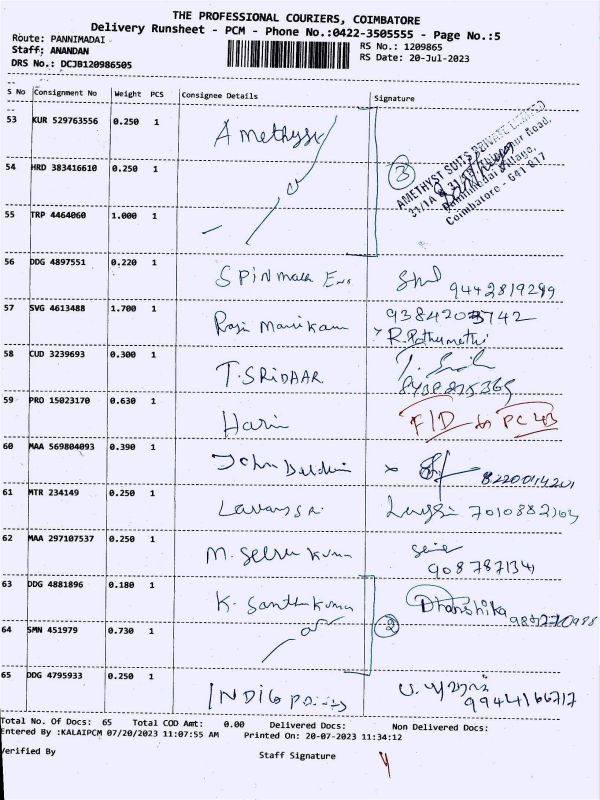 THE PROFESSIONAL COURIERS, COIMBATORE
Delivery Runsheet - PCM - Phone No.:0422-3505555 - Page No.:5
Route: PANNIMADAI
Staff; ANANDAN
DRS No.: DCJB120986505
RS No.: 1209865
RS Date: 20-Jul-2023
S No Consignment No Weight PCS Consignee Details Signature
53 KUR 529763556 0.250 1 Amethyst
AMETHYST SUITS PRIVATE LIMITED
31/1A & 31/1B Road,
Pannimadai Village,
Coimbatore - 641 017
3
54 HRD 383416610 0.250 1
55 TRP 4464060 1.000 1
56 DDG 4897551 0.220 1 9442819299
57 SVG 4613488 1.700 1 9384203742
R.Pothumathi
58 CUD 3239693 0.300 1 T.SRIDAAR
59 PRO 15023170 0.630 1 Harin F/D
60 MAA 569804093 0.390 1 John 8220014201
61 MTR 234149 0.250 1 7010882103
62 MAA 297107537 0.250 1 M. Kumar
908787134
63 DDG 4881896 0.180 1 K. Santhakumar Dhanshika
64 SMN 451979 0.730 1 2
65 DDG 4795933 0.250 1 INDIGO paints
9944166717
Total No. Of Docs: 65 Total COD Amt: 0.00 Delivered Docs: Non Delivered Docs:
Entered By :KALAIPCM 07/20/2023 11:07:55 AM Printed On: 20-07-2023 11:34:12
Verified By Staff Signature